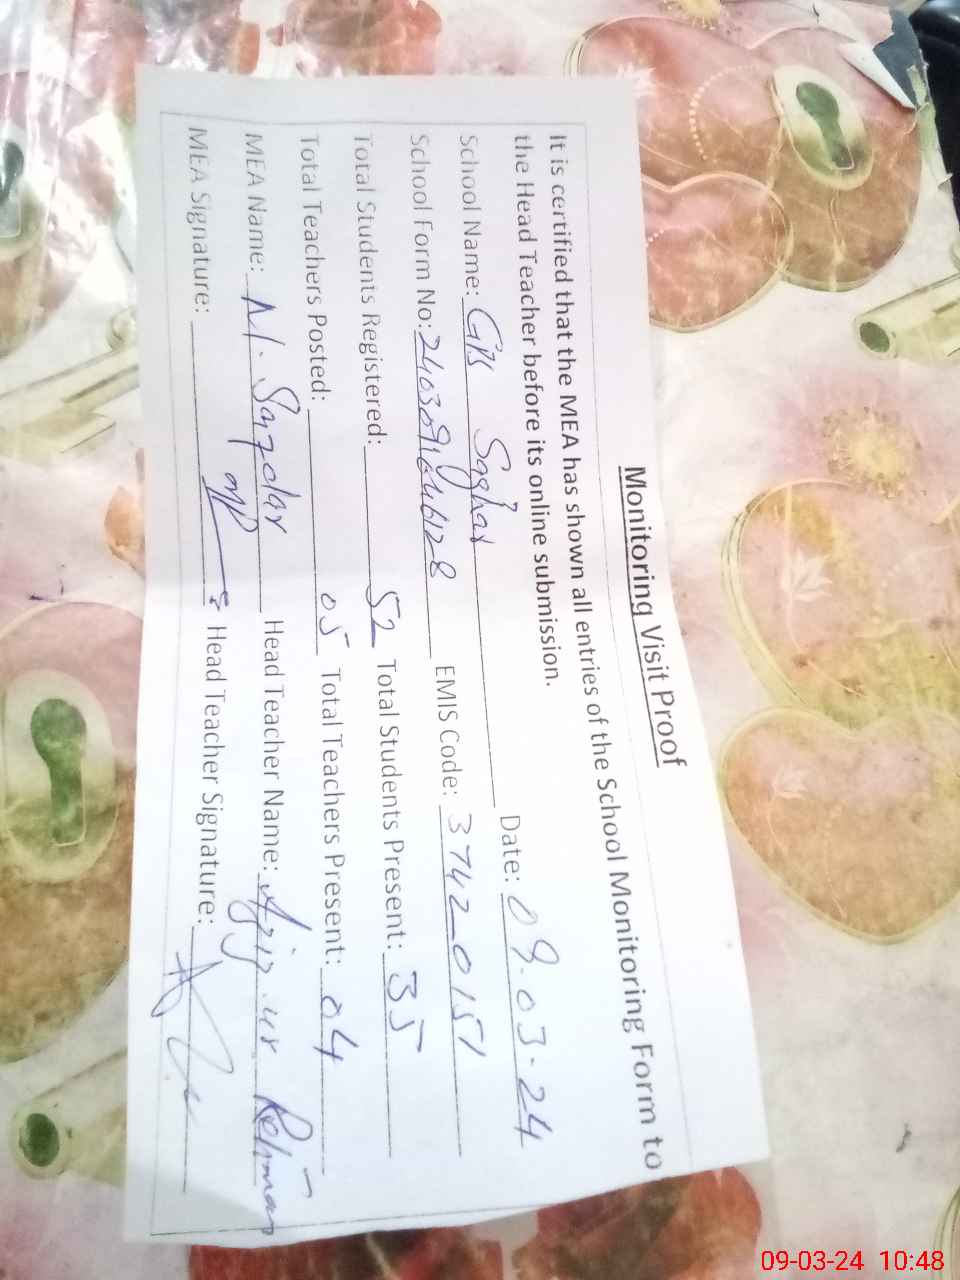 Monitoring Visit Proof
It is certified that the MEA has shown all entries of the School Monitoring Form to
the Head Teacher before its online submission.
School Name: Date: 09.03.24
School Form No: EMIS Code: 37420151
Total Students Registered: 52 Total Students Present: 35
Total Teachers Posted: 05 Total Teachers Present: 04
MEA Name: M. Safdar Head Teacher Name: ur Rehman
MEA Signature: Head Teacher Signature:
09-03-24 10:48